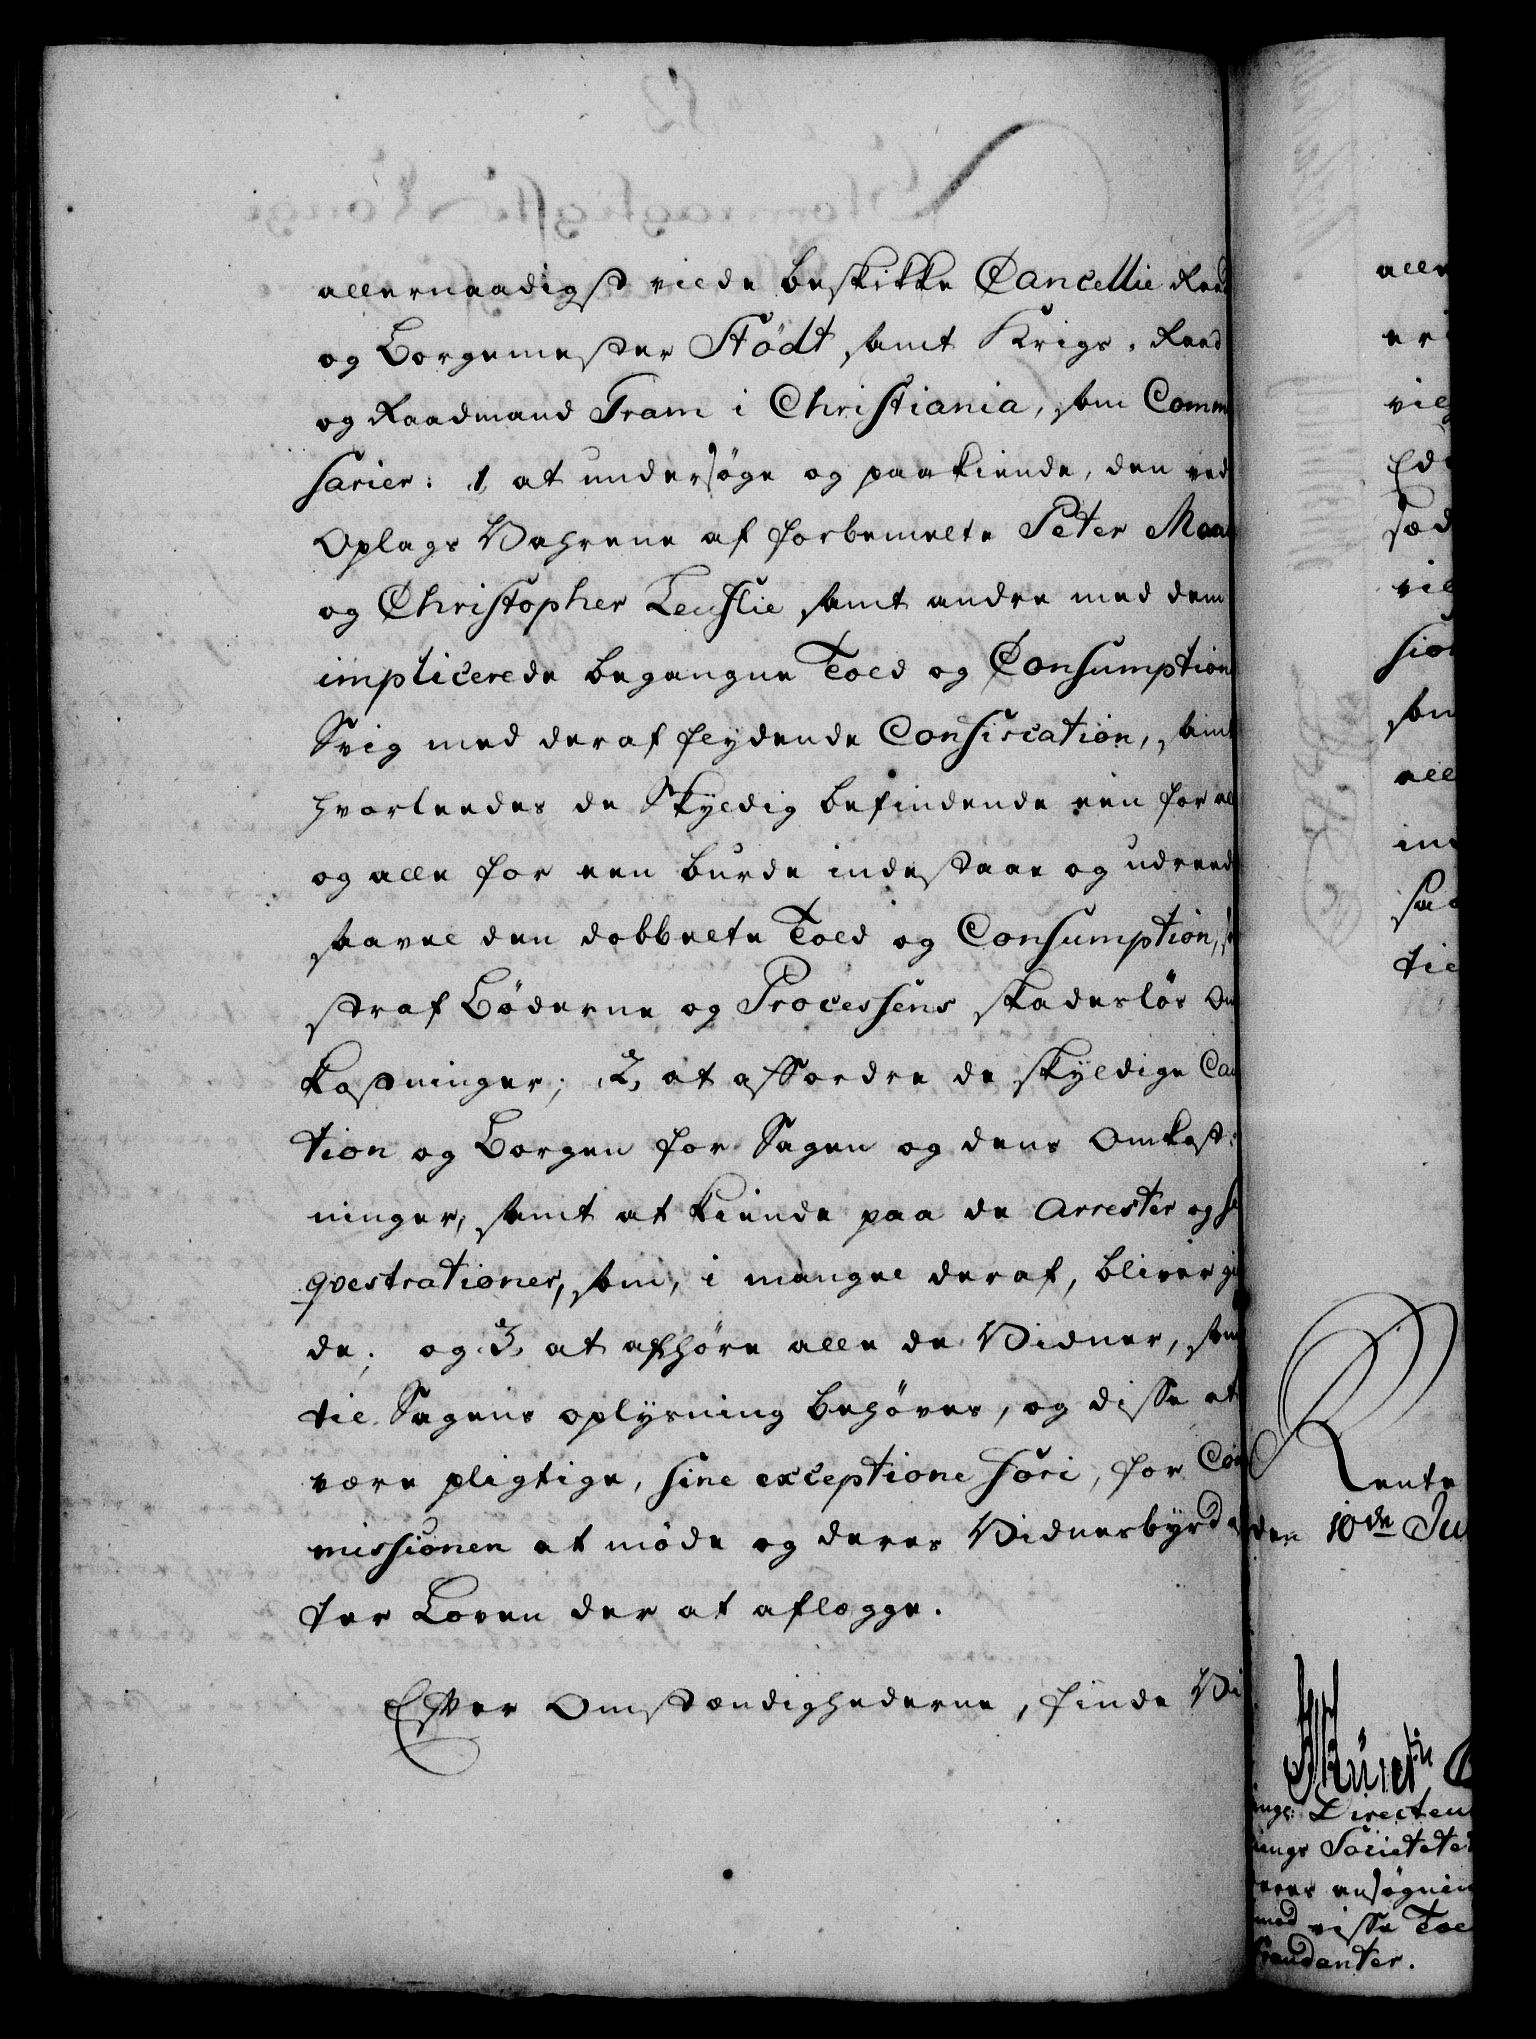 allernaadigst vilde beskikke Cancellie Raad
og Borgemester Stødt samt Krigs-Raad
og Raadmand Fram i Christiania, som Comm
sarier: 1, at undersøge og paakiende, den ved
Oplags Vahrene af forbemelte Peter Maa
og Christopher Leuslie samt andre med dem
implicerede begangne Told og Consumption
Svig med deraf flydende Confiscation, samt
hvorleedes de Skyldig befindende een for all
og alle for een burde indestaae og udreed
saavel den dobbelte Told og Consumption,
straf Bøderne og Processens skadesløs Om
kostninger; 2, at affordre de skyldige Cau
tion og Borgen for Sagen og dens Omkost:
ninger, samt at kiende paa de Arrester og Se
qvestrationer, som, i mangel deraf, bliver gi
de; og 3, at afhøre alle de Vidner, som
til Sagens oplysning behøves, og disse at
være pligtige, sine exceptione fori, for Com
missionen at møde og deres Vidnesbyrd
ter Loven der at aflægge.
Efter Omstændighederne, finde Vi
alle
er
vil
Ed
sæd
vil
sio
som
all
in
saa
til
Rente
den 10de Ju
Directeu
ings Societetet
deres ansøgnin
mod visse Tol
fraudanter.